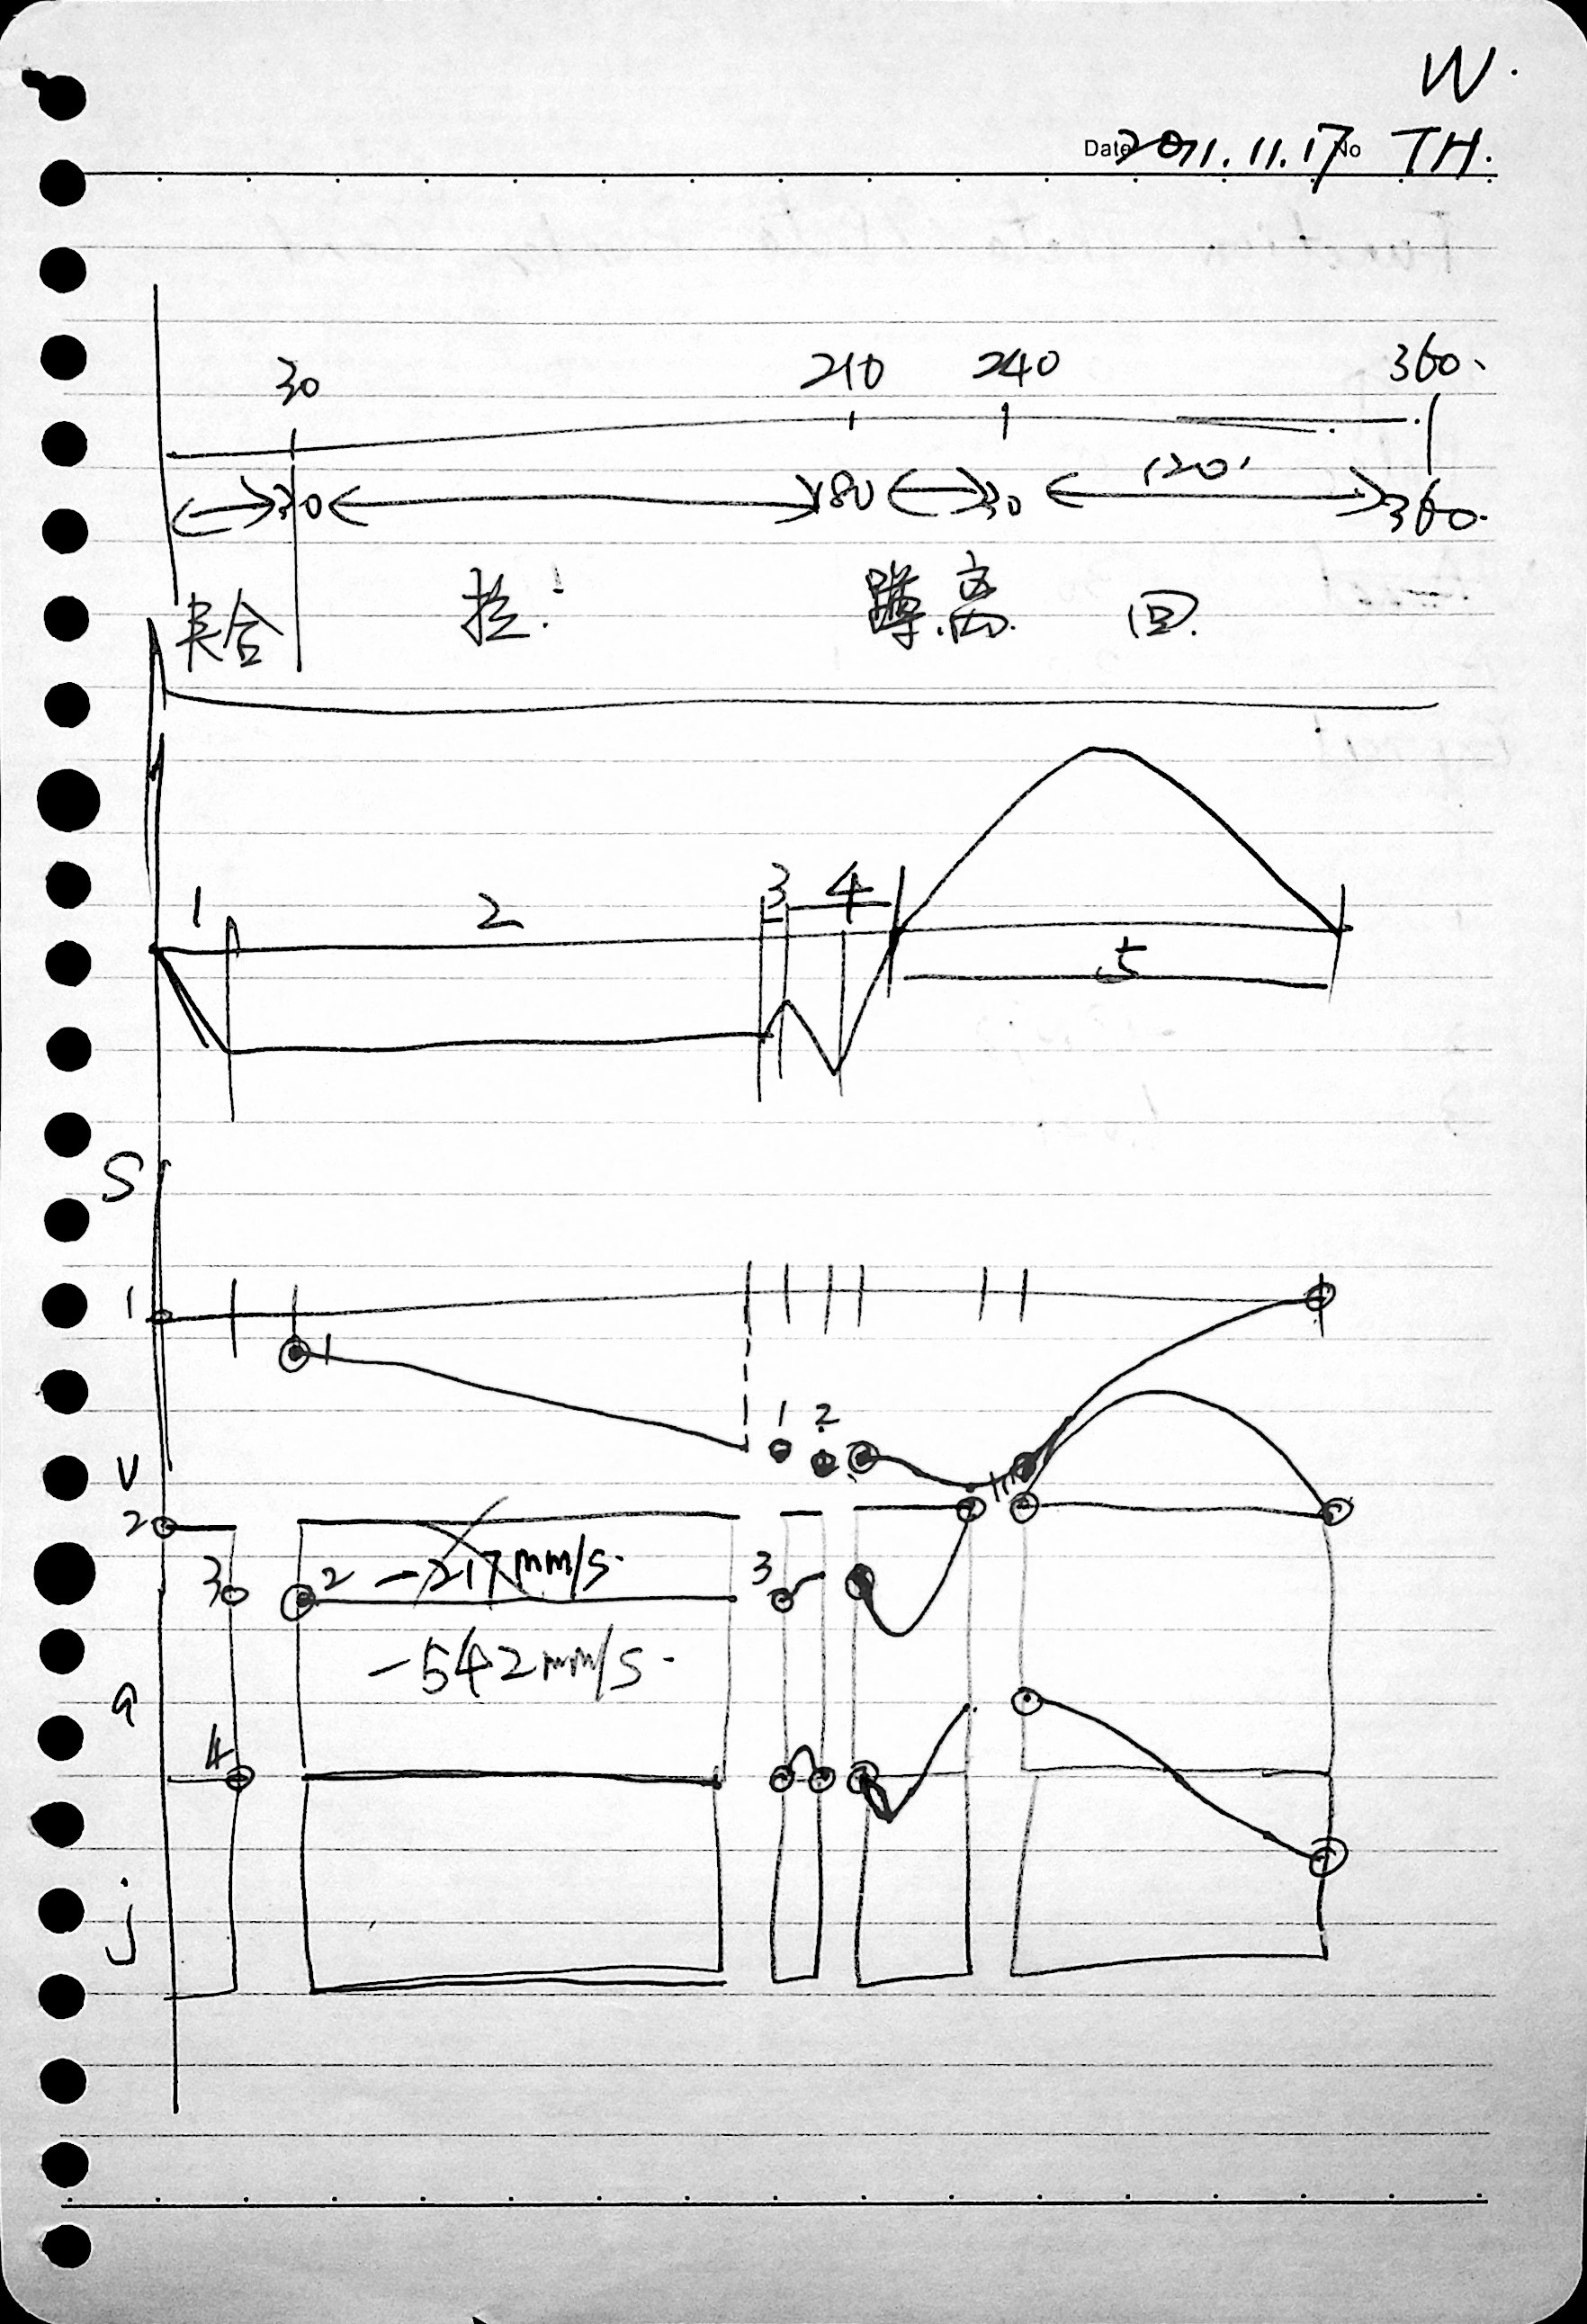 W.
Date 2011.11.17 No TH.
30 210 240 360.
30 180 30 120 360.
夹合 拉. 蹲.离. 回.
1 2 3 4
5
S
1
1
1 2
V
2
3 2 -217mm/s. 3
-542mm/s.
a
4
j